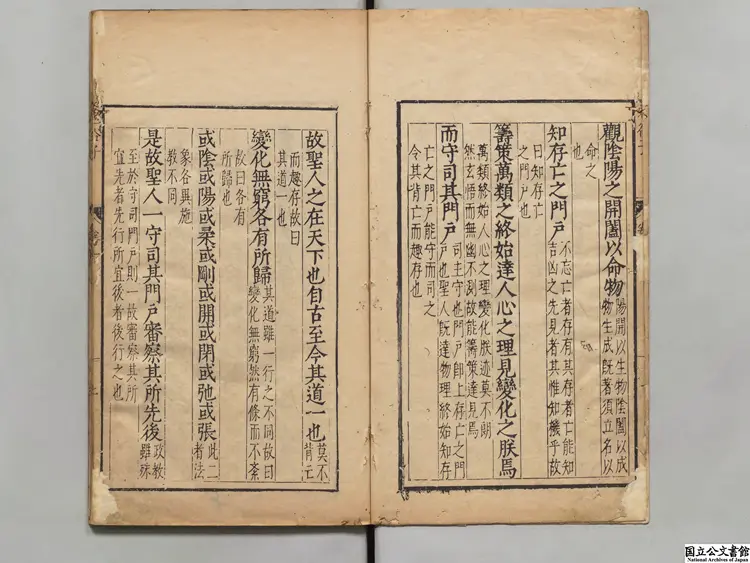 觀陰陽之開闔以命物
陽開以生物陰闔以成
物生成既著須立名以
命之
也
知存亡之門戶
不忘亡者存有其存者亡能知
吉凶之先見者其惟知機乎故
曰知存亡
之門戶也
籌策萬類之終始達人心之理見變化之朕焉
萬類終始人心之理變化朕迹莫不朗
然玄悟而無幽不測故能籌策達見焉
而守司其門戶
司主守也門戶即上存亡之門
戶也聖人既達物理終始知存
亡之門戶能守而司之
令其背亡而趣存也
故聖人之在天下也自古至今其道一也
莫不
背亡
而趣存故曰
其道一也
變化無窮各有所歸
其道雖一行之不同故曰
變化無窮然有條而不紊
故曰各有
所歸也
或陰或陽或柔或剛或開或閉或弛或張
此二
者法
象各異施
教不同
是故聖人一守司其門戶審察其所先後
政教
雖殊
至於守司門戶則一故審察其所
宜先者先行所宜後者後行之也
国立公文書館
National Archives of Japan